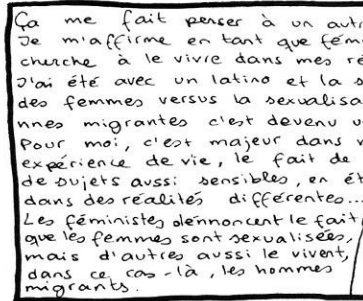 Ça me fait penser à un autr
Je m'affirme en tant que fém
cherche à le vivre dans mes ré
J'ai été avec un latino et la s
des femmes versus la sexualisa
nnes migrantes c'est devenu u
Pour moi, c'est majeur dans m
expérience de vie, le fait de
de sujets aussi sensibles, en ét
dans des réalités différentes...
Les féministes dénnoncent le fait
que les femmes sont sexualisées,
mais d'autres aussi le vivent,
dans ce cas-là, les hommes
migrants.